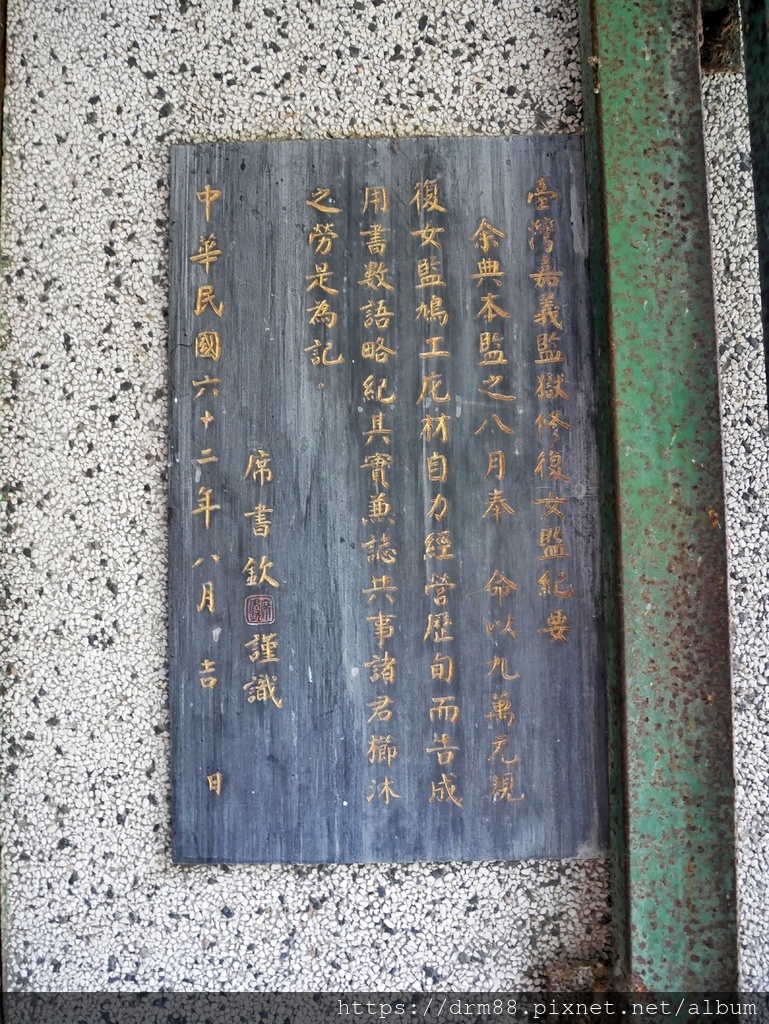 臺灣嘉義監獄修復女監紀要
余典本監之八月奉 命以九萬元規
復女監鳩工庀材自力經營歷旬而告成
用書數語略紀其實兼誌共事諸君櫛沐
之勞是為記。
席書欽 謹識
中華民國六十二年八月 吉 日
https://drm88.pixnet.net/album